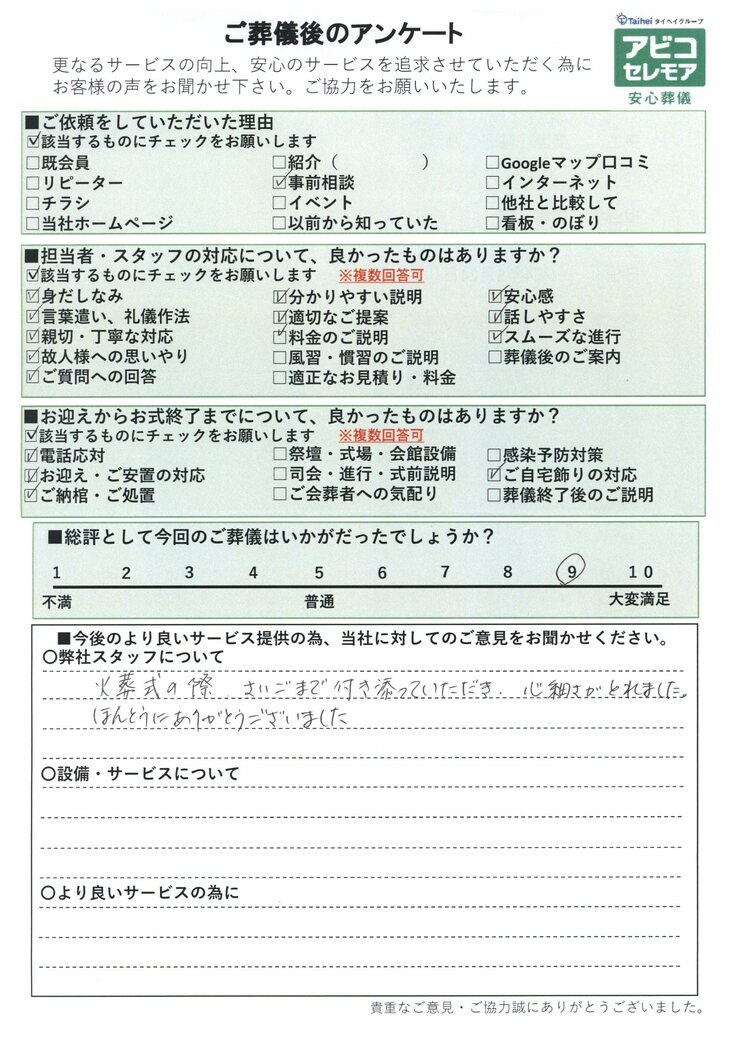 ご葬儀後のアンケート
Taihei タイヘイグループ
アビコ
セレモア
安心葬儀
更なるサービスの向上、安心のサービスを追求させていただく為に
お客様の声をお聞かせ下さい。ご協力をお願いいたします。
■ご依頼をしていただいた理由
☑該当するものにチェックをお願いします
□既会員 □紹介（ ） □Googleマップ口コミ
□リピーター ☑事前相談 □インターネット
□チラシ □イベント □他社と比較して
□当社ホームページ □以前から知っていた □看板・のぼり
■担当者・スタッフの対応について、良かったものはありますか？
☑該当するものにチェックをお願いします ※複数回答可
☑身だしなみ ☑分かりやすい説明 ☑安心感
☑言葉遣い、礼儀作法 ☑適切なご提案 ☑話しやすさ
☑親切・丁寧な対応 ☑料金のご説明 ☑スムーズな進行
☑故人様への思いやり □風習・慣習のご説明 □葬儀後のご案内
☑ご質問への回答 □適正なお見積り・料金
■お迎えからお式終了までについて、良かったものはありますか？
☑該当するものにチェックをお願いします ※複数回答可
☑電話応対 □祭壇・式場・会館設備 □感染予防対策
☑お迎え・ご安置の対応 □司会・進行・式前説明 ☑ご自宅飾りの対応
☑ご納棺・ご処置 □ご会葬者への気配り □葬儀終了後のご説明
■総評として今回のご葬儀はいかがだったでしょうか？
1 2 3 4 5 6 7 8 9 10
不満 普通 大変満足
■今後のより良いサービス提供の為、当社に対してのご意見をお聞かせください。
〇弊社スタッフについて
火葬式の際、さいごまで付き添っていただき、心細さがとれました。
ほんとうにありがとうございました
〇設備・サービスについて
〇より良いサービスの為に
貴重なご意見・ご協力誠にありがとうございました。